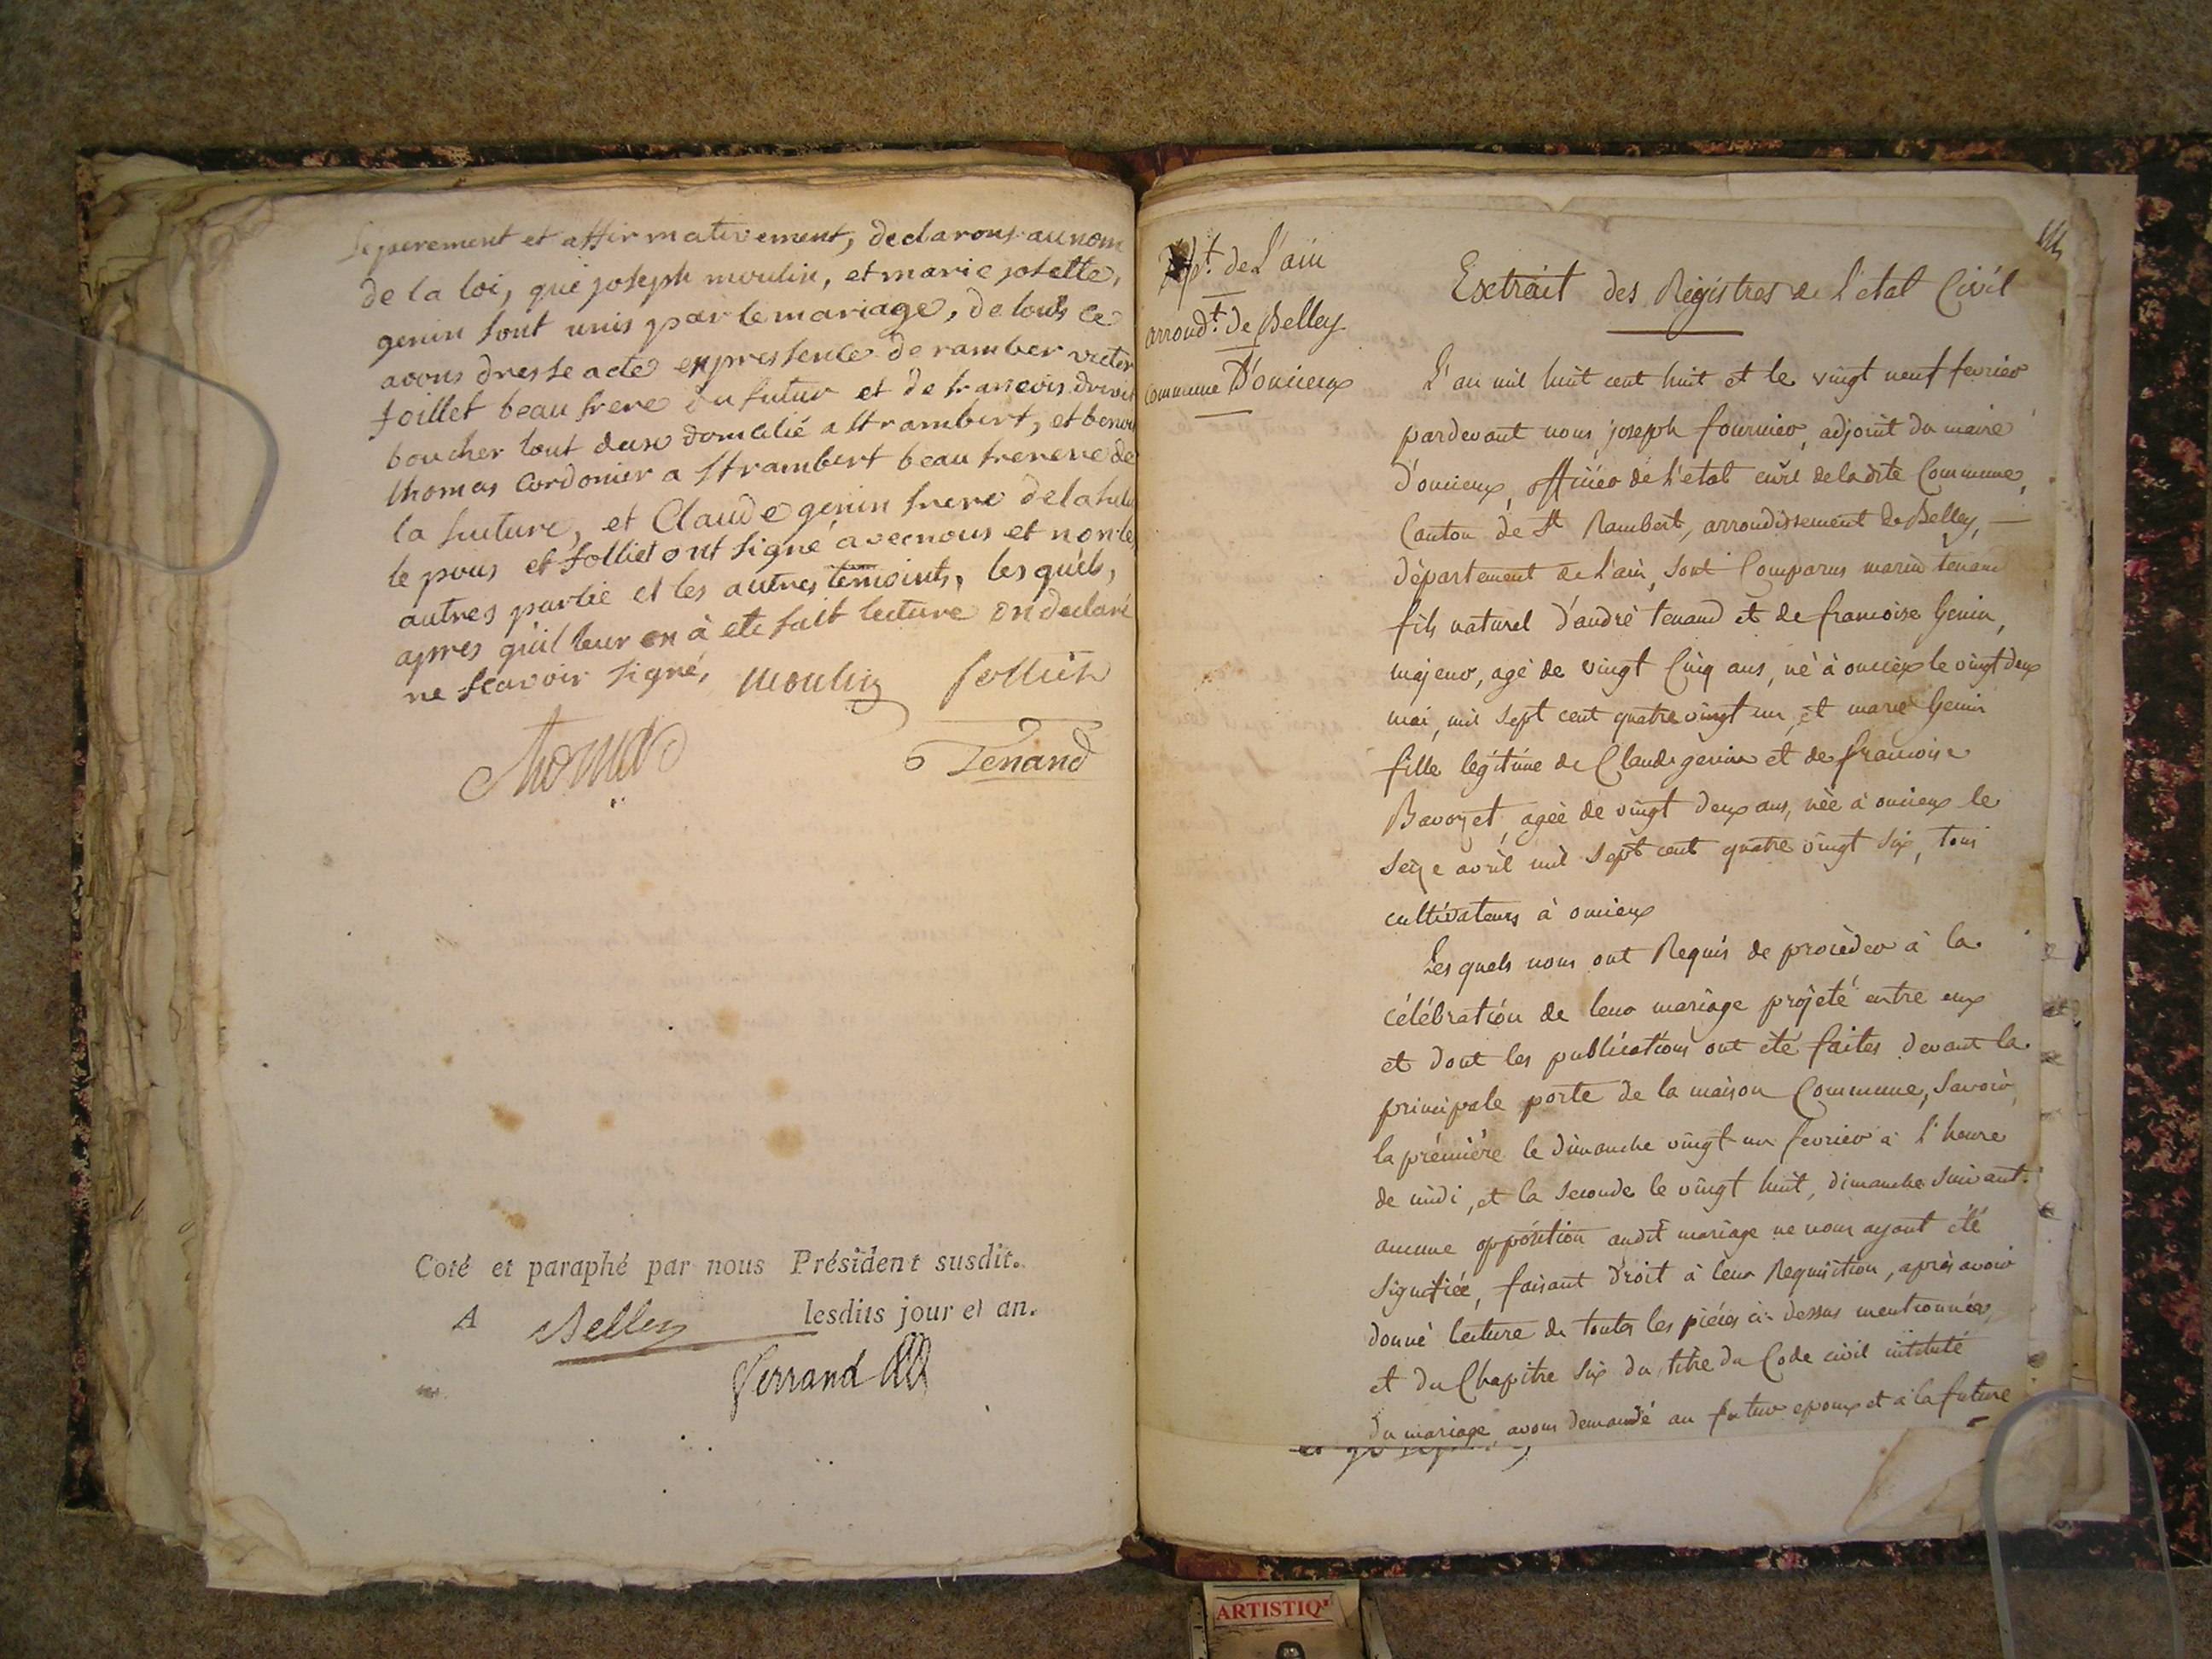 séperement et affirmativement, declarons au nom
de la loi, que joseph moulin, et marie josette,
genin sont unis par le mariage, de tout ce
avons dresse acte en pressence de ramber victor
follliet beau frere du futur et de francois
boucher tout deux domicilié a st rambert, et benoit
thomas cordonier a st rambert beau frerere de
la future, et Claude genin frere de la futu
le pous et folliet ont signé avec nous et non les
autres partie et les autres temoints, les quels,
apres quil leur en à ete fait lecture on declaré
ne scavoir signé, moulin folliet
thomas Tenand
Coté et paraphé par nous Président susdit.
A Belley lesdits jour et an.
Ferrand
Dépt. de L'ain
arrondt. de Belley
Commune D'oncieux
Extrait des Régistres de L'etat Civil
L'an mil huit cent huit et le vingt neuf fevrier
pardevant nous joseph fournier, adjoint du maire
d'oncieux, officier de L'etat civil de la dite Commune,
Canton de St Rambert, arrondissement de Belley,
département de L'ain, sont Comparus marin tenand
fils naturel d'andré tenand et de francoise Genin,
majeur, agé de vingt Cinq ans, né à oncieux le vingt deux
mai, mil sept cent quatre vingt un, et marie Genin
fille légitime de Claude genin et de francoise
Bavozet, agée de vingt deux ans, née à oncieux le
seize avril mil sept cent quatre vingt six, tous
cultivateurs à oncieux
Les quels nous ont Requis de procéder à la
célébration de leur mariage projeté entre eux
et dont les publications ont été faites devant la
principale porte de la maison Commune, Savoir,
la première le dimanche vingt un fevrier à l'heure
de midi, et la seconde le vingt huit, dimanche suivant.
aucune opposition audit mariage ne nous ayant été
signifiée, faisant droit à leur Requisition, après avoir
donné lecture de toutes les pièces ci-dessus mentionnées,
et du Chapitre six du titre du Code civil intitulé
du mariage avons demandé au futur epoux et à la future
ARTISTIQ